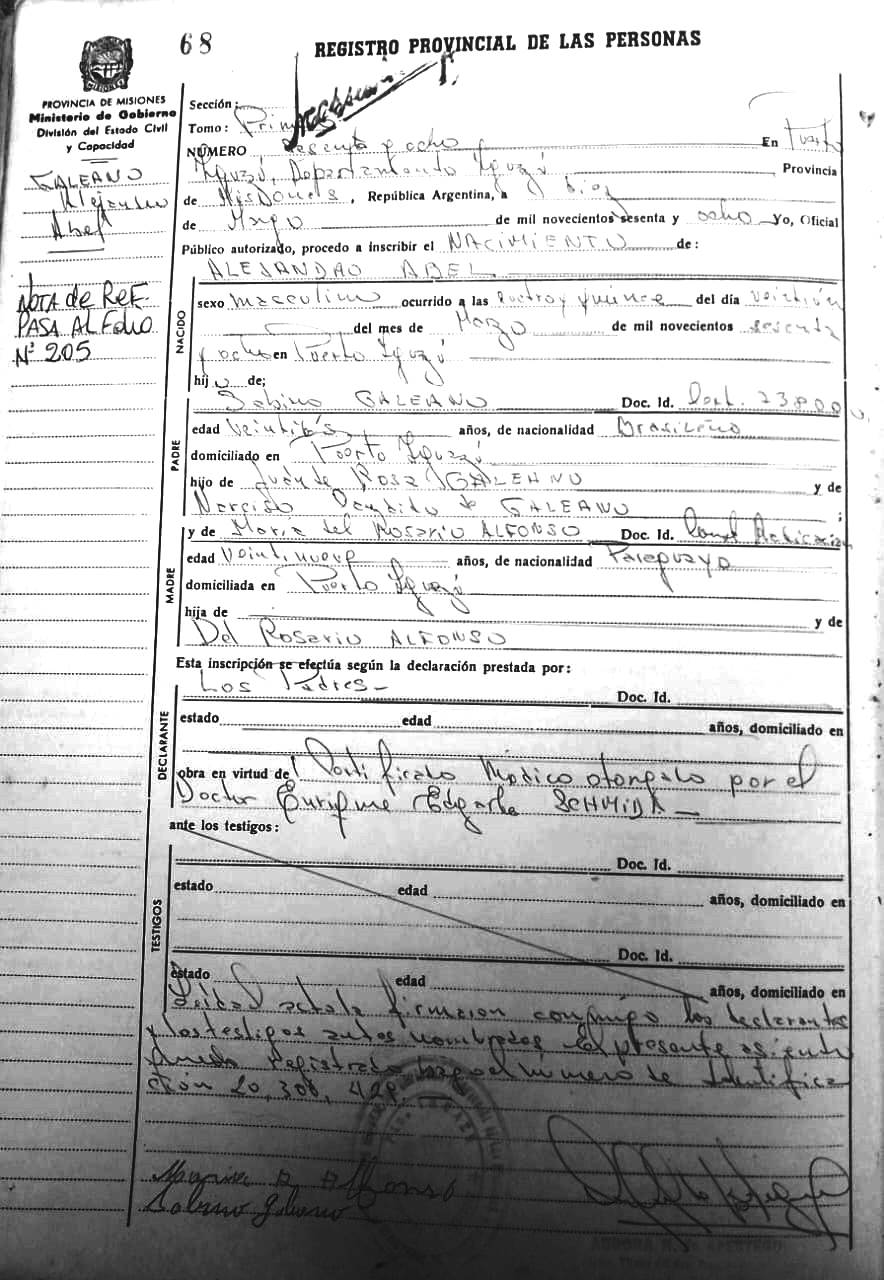 68
REGISTRO PROVINCIAL DE LAS PERSONAS
PROVINCIA DE MISIONES
Ministerio de Gobierno
División del Estado Civil
y Capacidad
GALEANO
Alejandro
Abel
NOTA de REF.
PASA AL Folio
Nº 205
Sección:
Tomo:
NÚMERO sesenta y ocho En Puerto
Iguazú, Departamento Iguazú Provincia
de Misiones, República Argentina, a
de de mil novecientos sesenta y ocho Yo, Oficial
Público autorizado, procedo a inscribir el NACIMIENTO de:
ALEJANDRO ABEL
NACIDO
sexo masculino ocurrido a las cuatro y quince del día
del mes de Marzo de mil novecientos sesenta
y ocho en Puerto Iguazú
hijo de;
PADRE
Sabino GALEANO Doc. Id.
edad años, de nacionalidad Brasileño
domiciliado en Puerto Iguazú
hijo de Rosa GALEANO y de
de GALEANO ;
MADRE
y de María del Rosario ALFONSO Doc. Id.
edad veintinueve años, de nacionalidad Paraguaya
domiciliada en Puerto Iguazú
hija de y de
Del Rosario ALFONSO
Esta inscripción se efectúa según la declaración prestada por:
DECLARANTE
Los Padres Doc. Id.
estado edad años, domiciliado en
obra en virtud de Certificado Médico otorgado por el
Doctor Enrique Edgardo
ante los testigos:
TESTIGOS
Doc. Id.
estado edad años, domiciliado en
Doc. Id.
estado edad años, domiciliado en
Leida el acta la firman conmigo los declarantes
y los testigos antes nombrados El presente asiento
queda registrado bajo el número de Identifica
ción 20,300,429.
Alfonso
Sabino Galeano